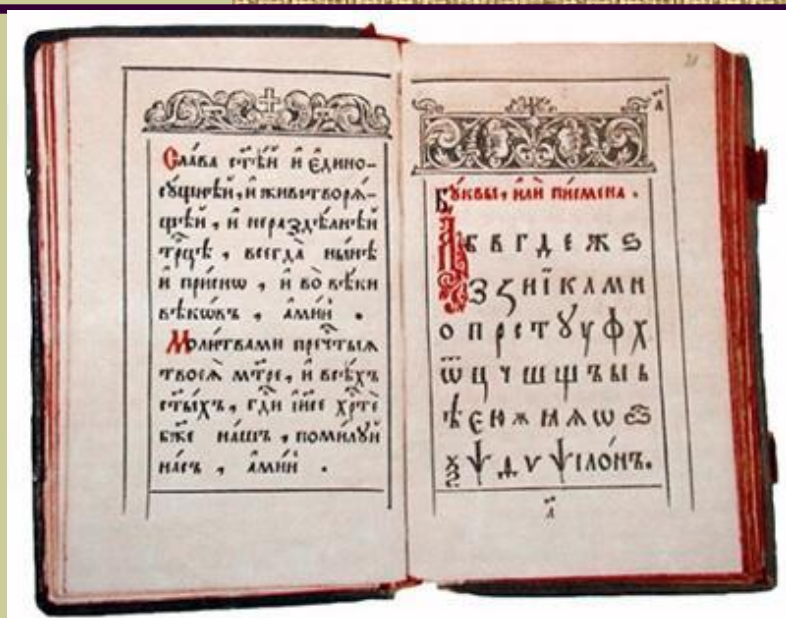 Сла́ва ст҃ѣ́й и҆ є҆дино-
сꙋ́щнѣй, и҆ животворѧ́-
щей, и҆ нераздѣ́лнѣй
трⷪ҇цѣ, всегда̀ ны́нѣ
и҆ при́снѡ, и҆ во вѣ́ки
вѣкѡ́въ, а҆ми́нь.
Моли́твами пречⷭ҇тыѧ
твоеѧ̀ мт҃ре, и҆ всѣ́хъ
ст҃ы́хъ, гдⷭ҇и і҆и҃се хрⷭ҇тѐ
бж҃е на́шъ, поми́лꙋй
на́съ, а҆ми́нь.
21
Бꙋ́квы, и҆лѝ пи́смена.
А Б В Г Д Е Ж Ѕ
З И Ї К Л М Н
О П Р С Т Ꙋ У Ф Х
Ѿ Ц Ч Ш Щ Ъ Ы Ь
Ѣ Є Ю Ѫ Ѧ Ѡ
Ѯ Ѱ Ѵ Ѱїло́нъ.